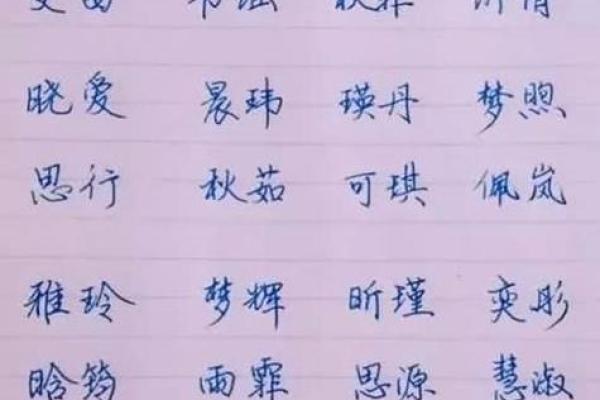 晓爱 晨玮 瑛丹 梦煦
思行 秋茹 可琪 佩岚
雅玲 梦辉 昕瑾 奕彤
晗筠 雨霏 思源 慧淑